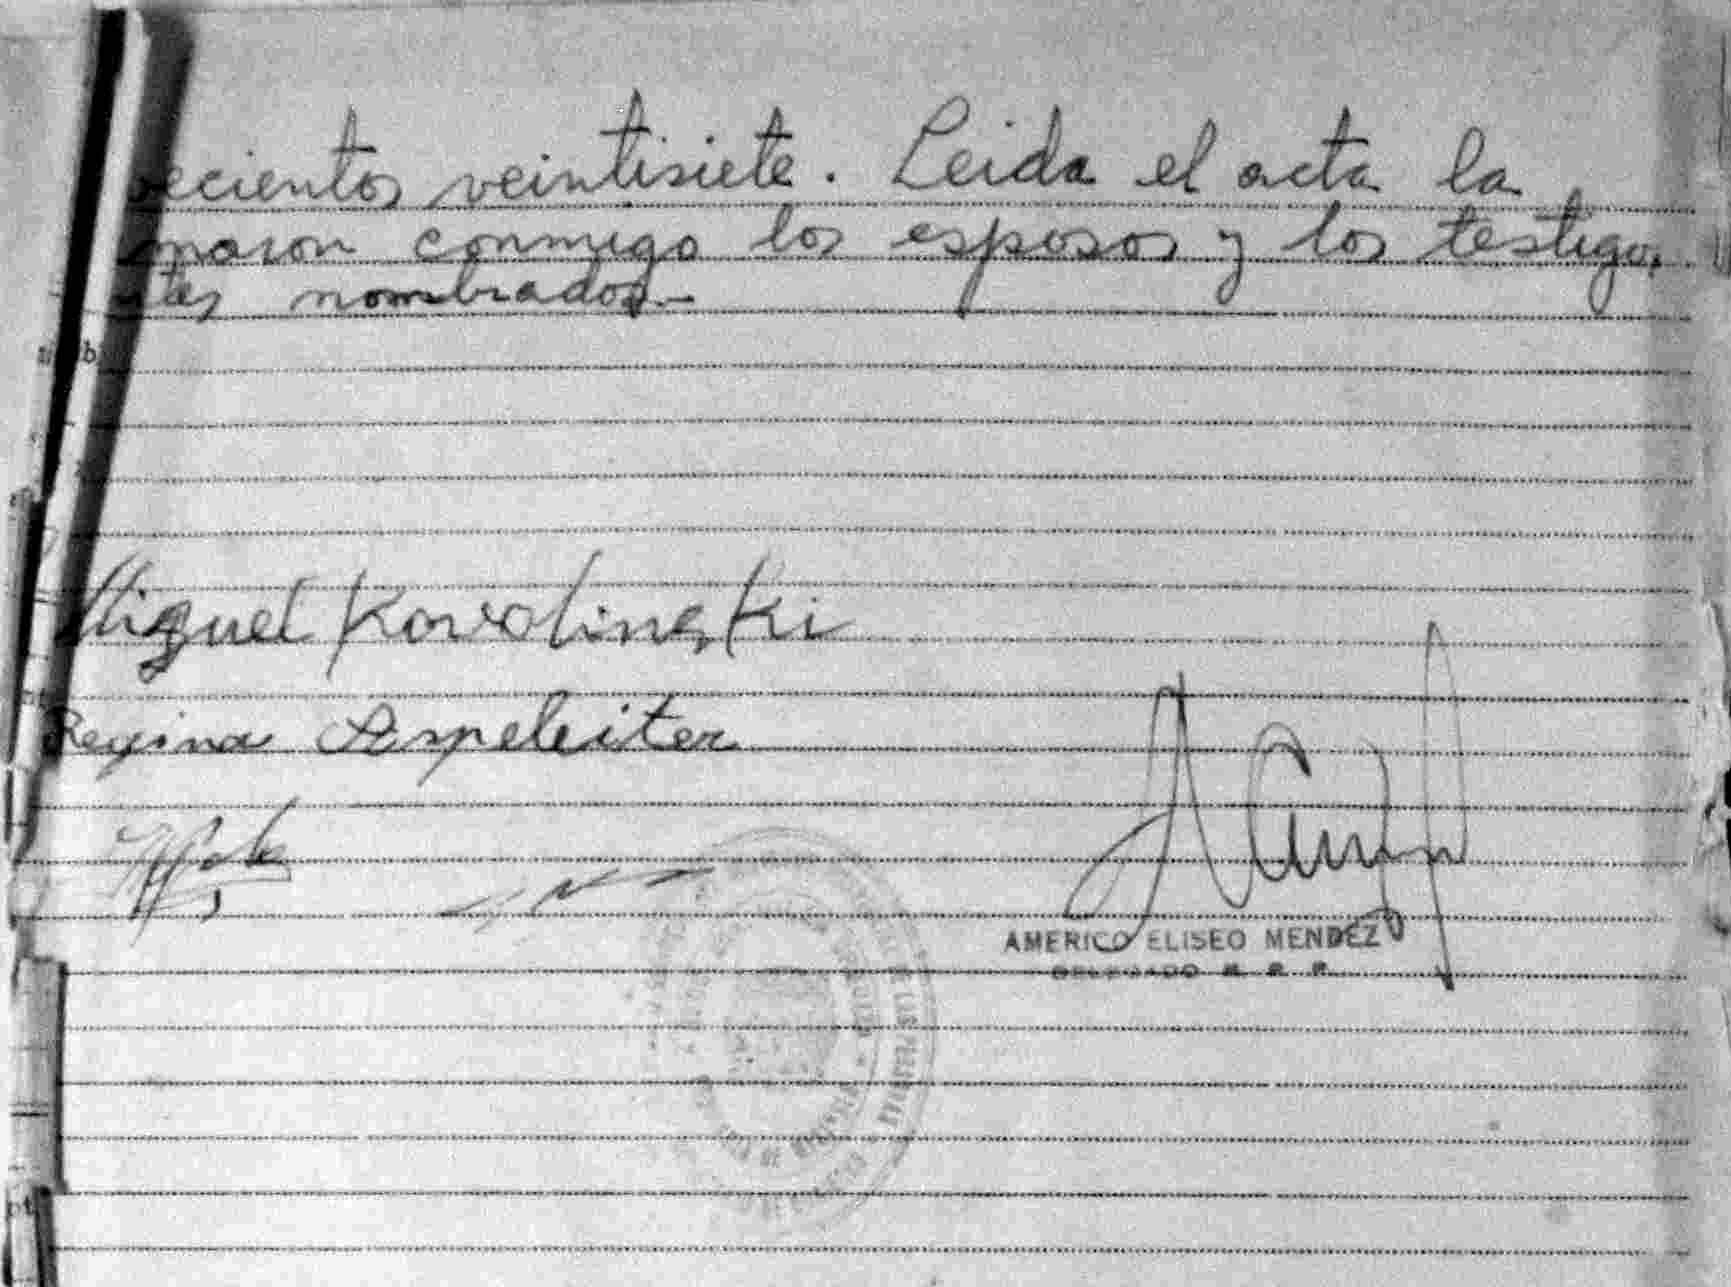 vecientos veintisiete. Leida el acta la
maron conmigo los esposos y los testigos
ntes nombrados.-
Miguel Kovolinski
Regina Aspeleiter
AMERICO ELISEO MENDEZ
DELEGADO R. P. P.
DE LAS PERSONAS